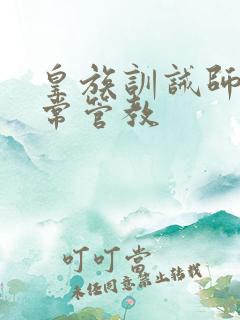 皇族訓誡師
常管教
叮叮當
未经同意禁止转载